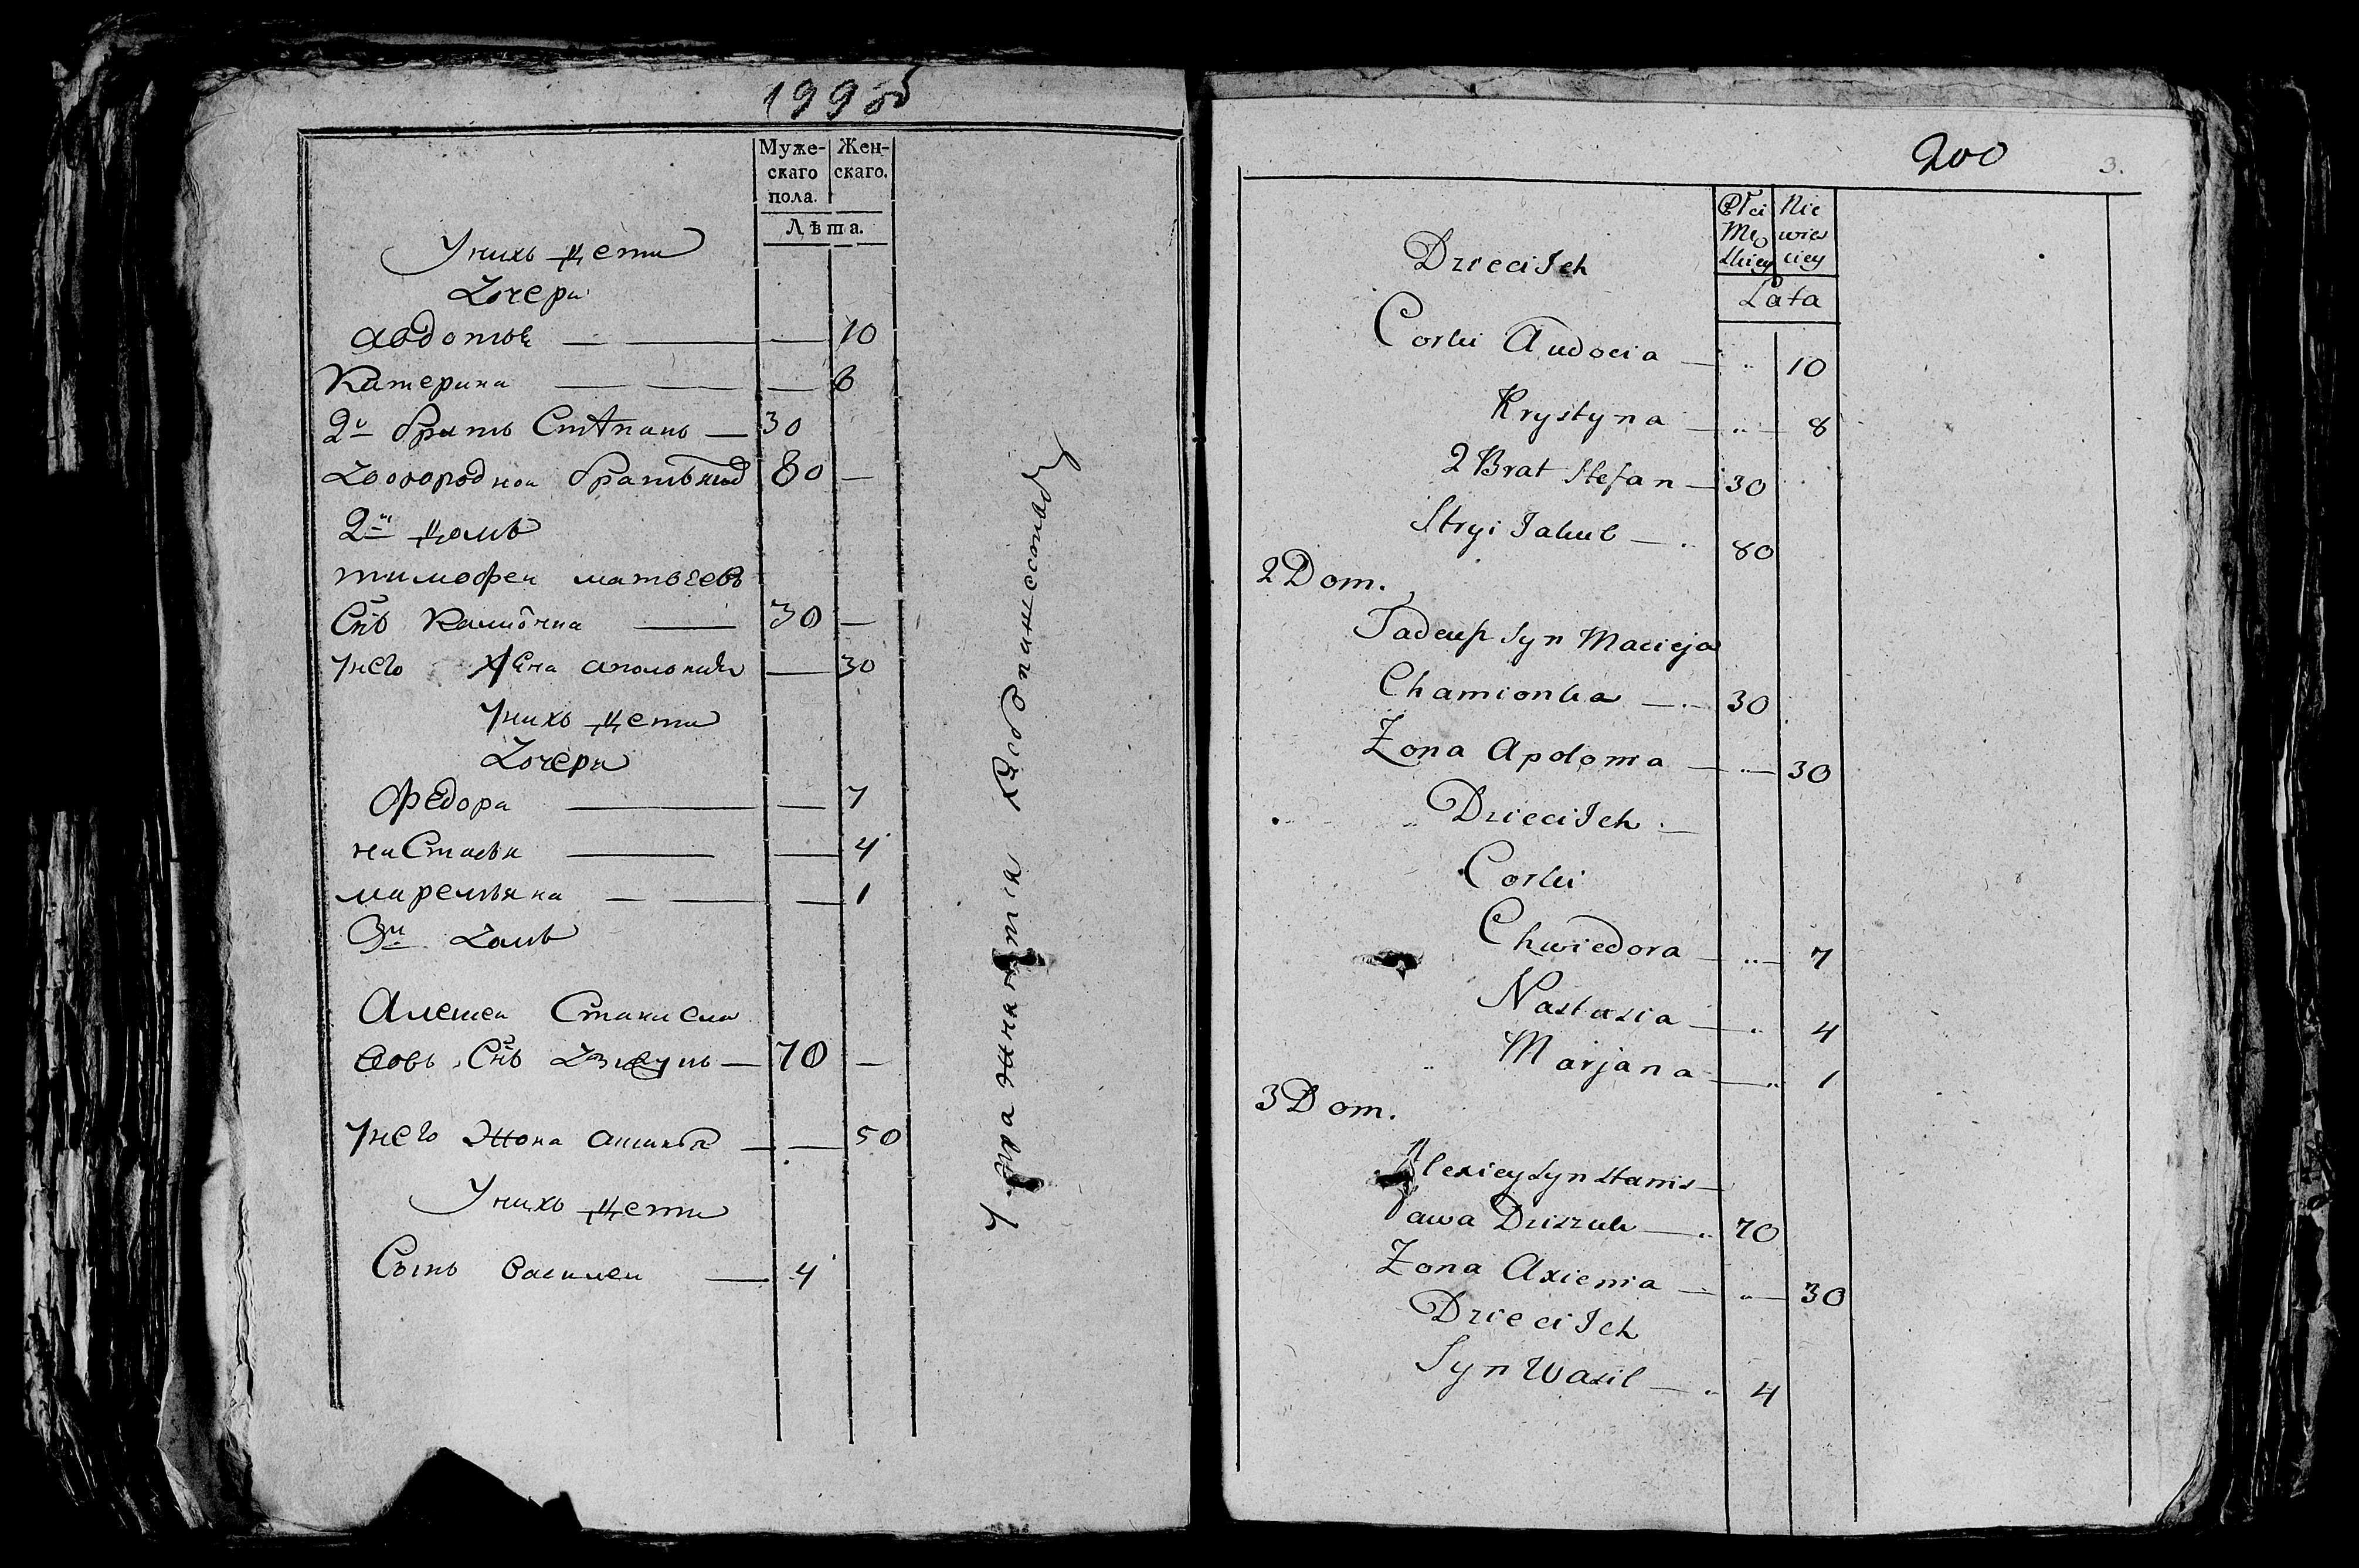 199об
Муже- Жен-
скаго скаго.
пола.
Лѣта.
Унихъ дети
Дочери
авдотья — — — 10
Катерина — — — 8
2й братъ Степанъ — 30
Двоюродной 80 —
2й домъ
тимофеи матвеевъ
Снъ — 30 —
унего жена аполония — 30
унихъ дети
Дочери
Федора — — 7
настасья — — 4
марельяна — — — 1
3й Домъ
Алексеи Станисла
вовъ Снъ — 70 —
унего жона — — 50
Унихъ дети
Сынъ василеи — 4
200
3.
Płci Nie
Mę wies
skiey ciey
Lata
Dzieci Ich
Corki Audocia — " 10
Krystyna — " — 8
2 Brat Stefan — 30
Stryi Jakub — " 80
2 Dom.
Tadeusz Syn Macieja
Chamionka — " — 30
Zona Apolonia — " — 30
Dzieci Ich —
Corki
Chwiedora — " — 7
Nastazia — " 4
Marjana — " 1
3 Dom.
Alexiey Syn Stanis—
ława — " 70
Zona Axienia — " — 30
Dzieci Ich
Syn Wasil — " 4